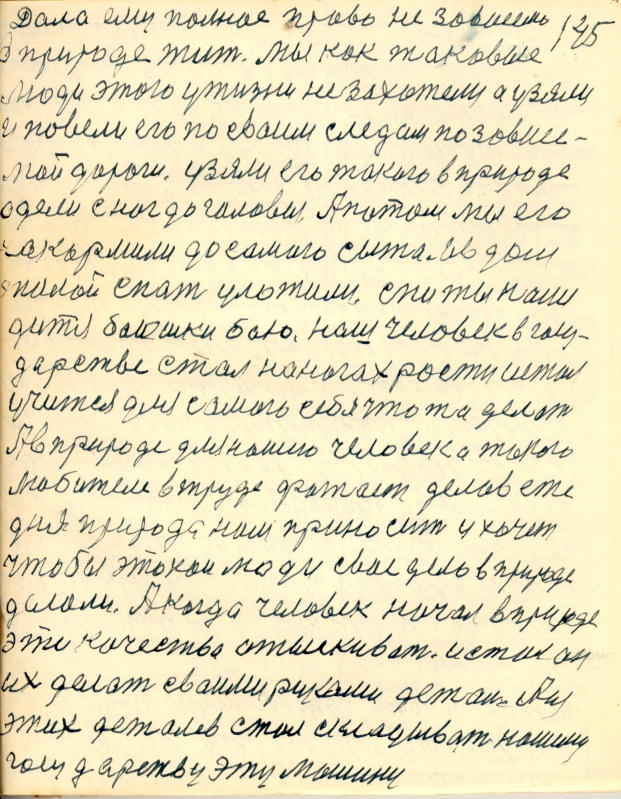 Дала ему полное право не зовисемо 125
в природе жит. Мы как таковые
люди этого у жизни не захотели а узяли
и повели его по своим следам по зовисе-
мой дороги. узяли его такого в природе
одели с ног до головы. А потом мы его
накормили до самого сыта. Ив дом
такой спат уложили. спи ты наш
дитя баюшки баю. наш человек в госу-
дарстве стал на ногах рости и стал
учится для самого себя что та делат
А в природе для нашего человека такого
любителе в труде фатает делов сне
дня природа нам приносит и хочет
чтобы этоком люди свае дело в природе
делали. А когда человек начал в природе
эти качества отыскиват. и стал он
их делат своими руками детал. А из
этих деталев стал складыват нашему
госу дарству эту машину